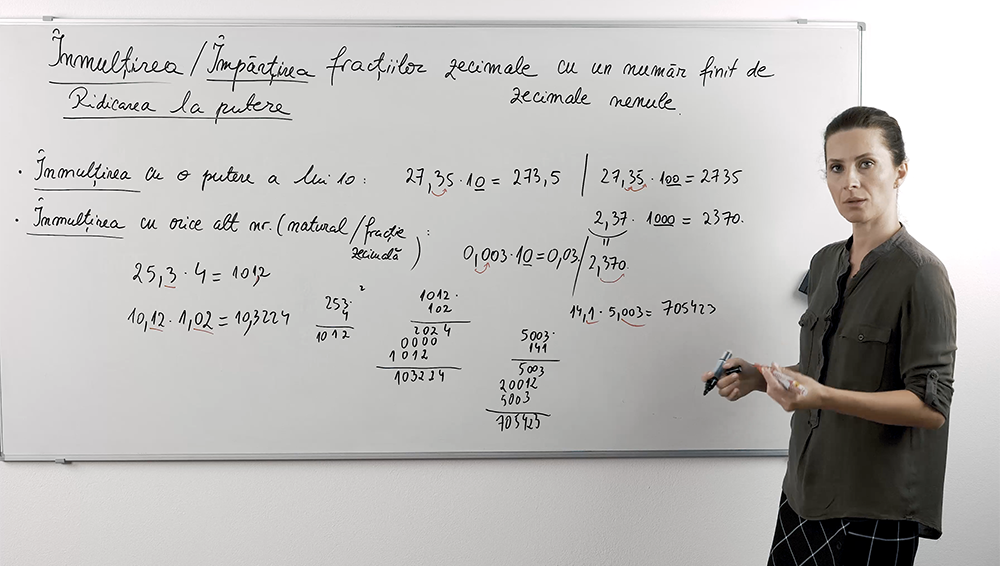 Înmulțirea / Împărțirea fracțiilor zecimale cu un număr finit de
Ridicarea la putere zecimale nenule.
· Înmulțirea cu o putere a lui 10 : 27,35 · 10 = 273,5 | 27,35 · 100 = 2735
2,37 · 1000 = 2370.
" 
2,370
· Înmulțirea cu orice alt nr. (natural / fracție zecimală) :
0,003 · 10 = 0,03
25,3 · 4 = 101,2
10,12 · 1,02 = 10,3224
2
253 ·
4
1012
1012 ·
102
2024
0000
1012
103224
14,1 · 5,003 = 705423
5003 ·
141
5003
20012
5003
705423